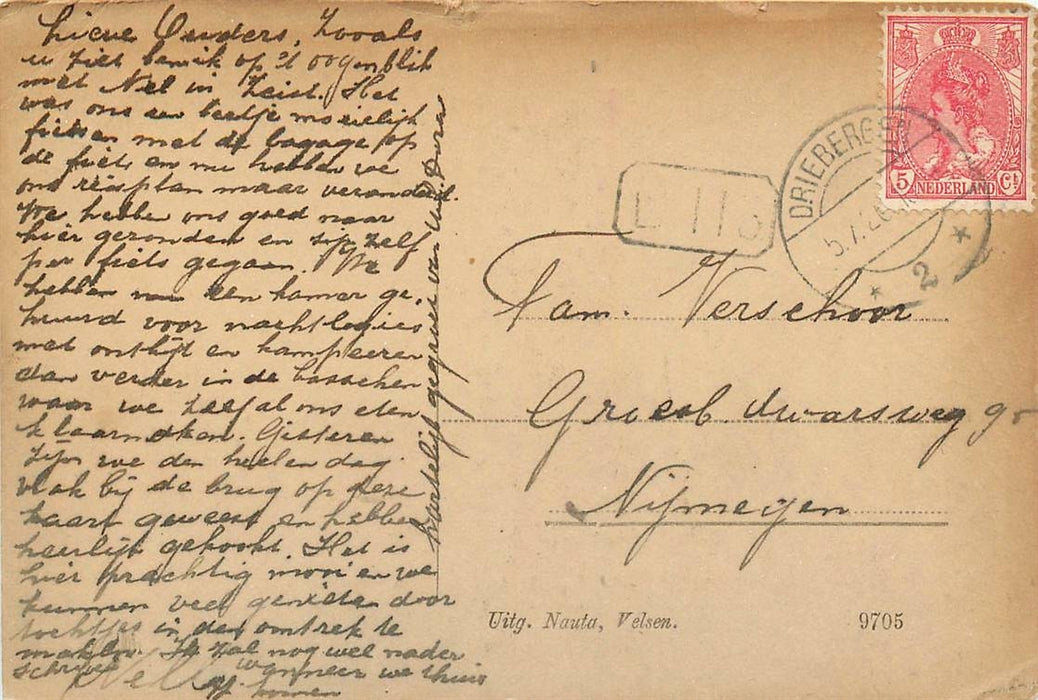 Lieve Ouders, Zooals
u ziet ben ik op 't oogenblik
met Nel in Zeist. Het
was ons een beetje moeielijk
fietsen met de bagage op
de fiets en nu hebben we
ons reisplan maar veranderd.
We hebben ons goed naar
hier gezonden en zijn zelf
per fiets gegaan. We
hebben nu een kamer ge-
huurd voor nachtlogies
met ontbijt en kampeeren
dan verder in de bosschen
waar we zelf al ons eten
klaarmaken. Gisteren
zijn we den heelen dag
vlak bij de brug op deze
kaart geweest en hebben
heerlijk gekookt. Het is
hier prachtig mooi en we
kunnen veel genieten door
tochtjes in den omtrek te
maken. Ik zal nog wel nader
schrijven wanneer we thuis
komen
Hartelijk gegroet van Uw
Nel
DRIEBERGEN
5.7.2
2
5 NEDERLAND Ct
Fam. Verschoor
Groesb. dwarsweg 90
Nijmegen
Uitg. Nauta, Velsen. 9705